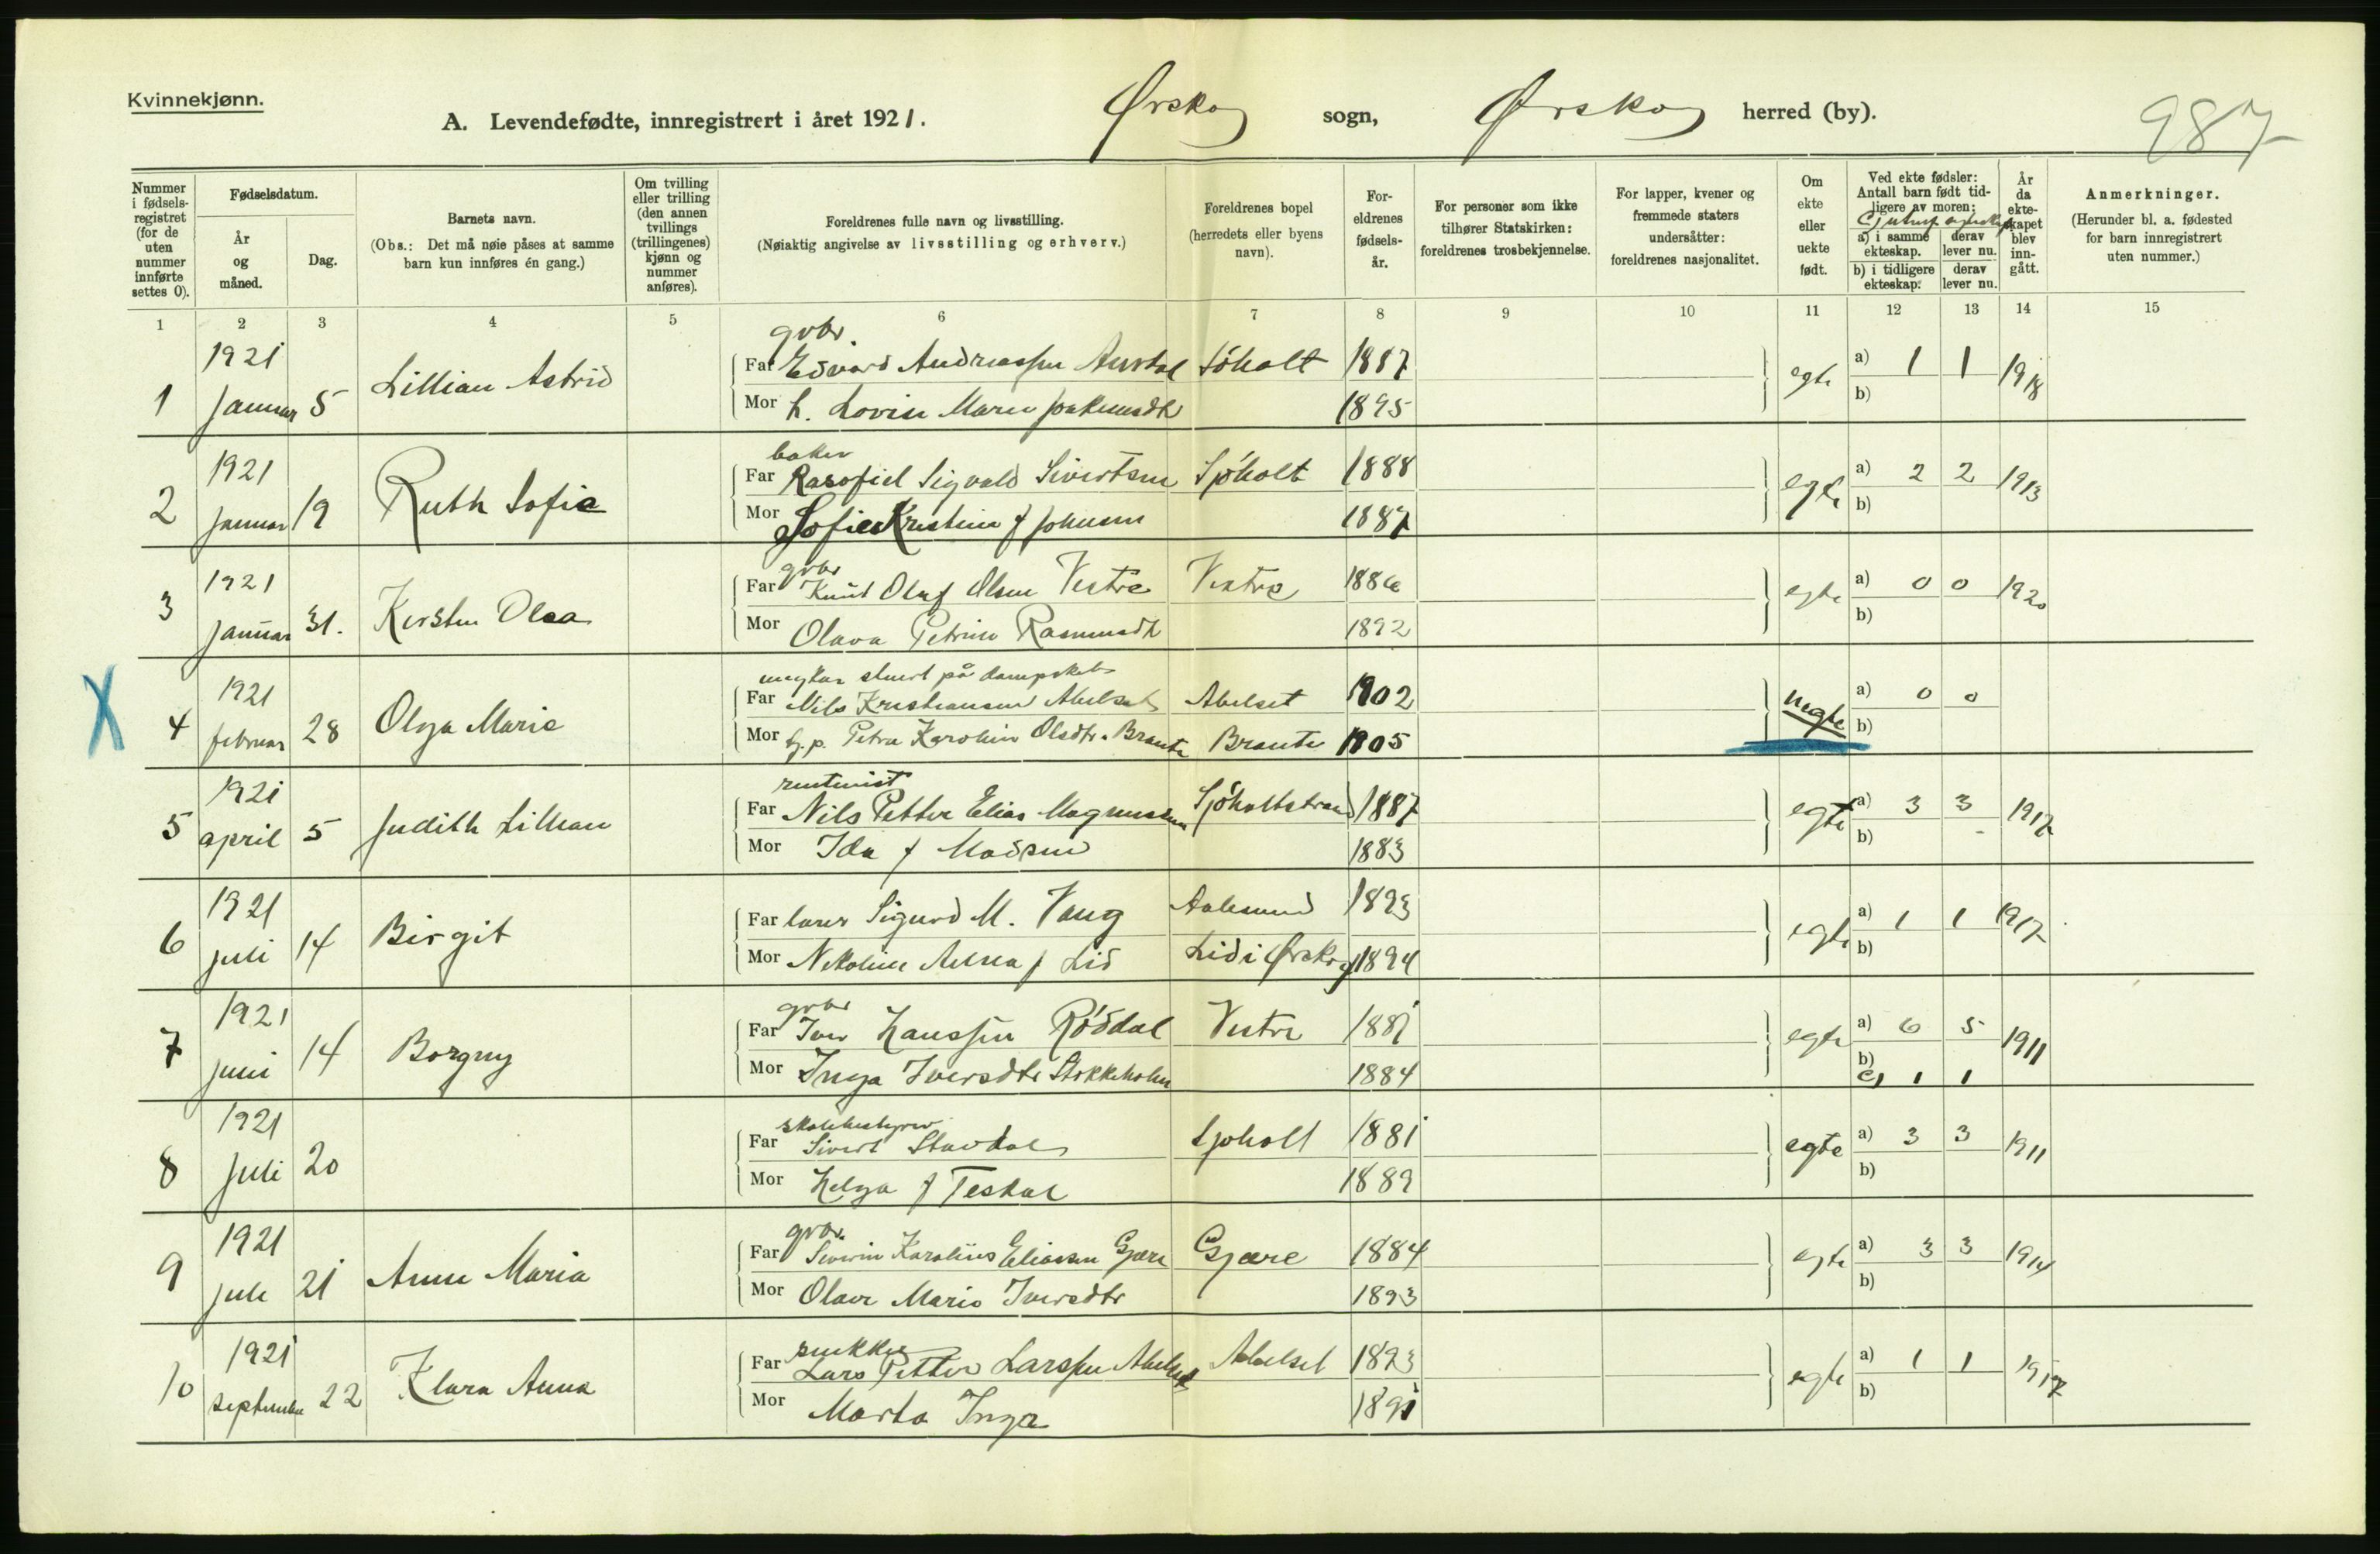 Kvinnekjønn.
A. Levendefødte, innregistrert i året 1921. Ørskog sogn, Ørskog herred (by).
987
Nummer i fødsels-registret (for de uten nummer innførte settes 0).
Fødselsdatum.
År og måned.
Dag.
Barnets navn.
(Obs.: Det må nøie påses at samme barn kun innføres én gang.)
Om tvilling eller trilling (den annen tvillings (trillingenes) kjønn og nummer anføres).
Foreldrenes fulle navn og livsstilling.
(Nøiaktig angivelse av livsstilling og erhverv.)
Foreldrenes bopel (herredets eller byens navn).
For-eldrenes fødsels-år.
For personer som ikke tilhører Statskirken: foreldrenes trosbekjennelse.
For lapper, kvener og fremmede staters undersåtter: foreldrenes nasjonalitet.
Om ekte eller uekte født.
Ved ekte fødsler: Antall barn født tid-ligere av moren:
a) i samme ekteskap. derav lever nu.
b) i tidligere ekteskap. derav lever nu.
År da ekte-skapet blev inn-gått.
Anmerkninger.
(Herunder bl. a. fødested for barn innregistrert uten nummer.)
1 2 3 4 5 6 7 8 9 10 11 12 13 14 15
gbr.
1 1921 januar 5 Lillian Astrid Far Edvard Andreassen Aurdal Söholt 1887 egte a) 1 1 1918
Mor h. Lovise Maren Joakimsdtr 1895 b)
baker
2 1921 januar 19 Ruth Sofie Far Rasofiel Sigvald Sivertsen Sjøholt 1888 egte a) 2 2 1913
Mor Sofie Kristine f Johnsen 1887 b)
gbr
3 1921 januar 31. Kirsten Olea Far Knut Olaf Olsen Vestre Vestre 1886 egte a) 0 0 1920
Mor Olava Petrine Rasmusdtr 1892 b)
ungkar stuert på dampskib
X 4 1921 februar 28 Olga Marie Far Nils Kristiansen Abelset Abelset 1902 uegte a) 0 0
Mor g.p. Petra Karoline Olsdtr. Braute Braute 1905 b)
rentenist
5 1921 april 5 Judith Lillian Far Nils Petter Elias Magnussen Sjöholtstrand 1887 egte a) 3 3 1917
Mor Ida f Madsen 1883 b)
6 1921 juli 14 Birgit Far lærer Sigurd M. Vaug Aalesund 1893 egte a) 1 1 1917
Mor Nikoline Anna f Lid Lid i Ørskog 1894 b)
gbr
7 1921 juni 14 Borgny Far Iver Hanssen Röddal Vestre 1881 egte a) 6 5 1911
Mor Inga Iversdtr Stokkeholm 1884 b)
c) 1 1
skolebestyrer
8 1921 juli 20 Far Sivert Stavdal Sjøholt 1881 egte a) 3 3 1911
Mor Helga f Teskal 1889 b)
gbr.
9 1921 juli 21 Anne Maria Far Severin Karolius Eliassen Gjære Gjære 1884 egte a) 3 3 1914
Mor Olave Marie Iversdtr 1893 b)
snekker
10 1921 september 22 Klara Anna Far Lars Petter Larssen Abelset Abelset 1893 egte a) 1 1 1917
Mor Marta Inga 1891 b)